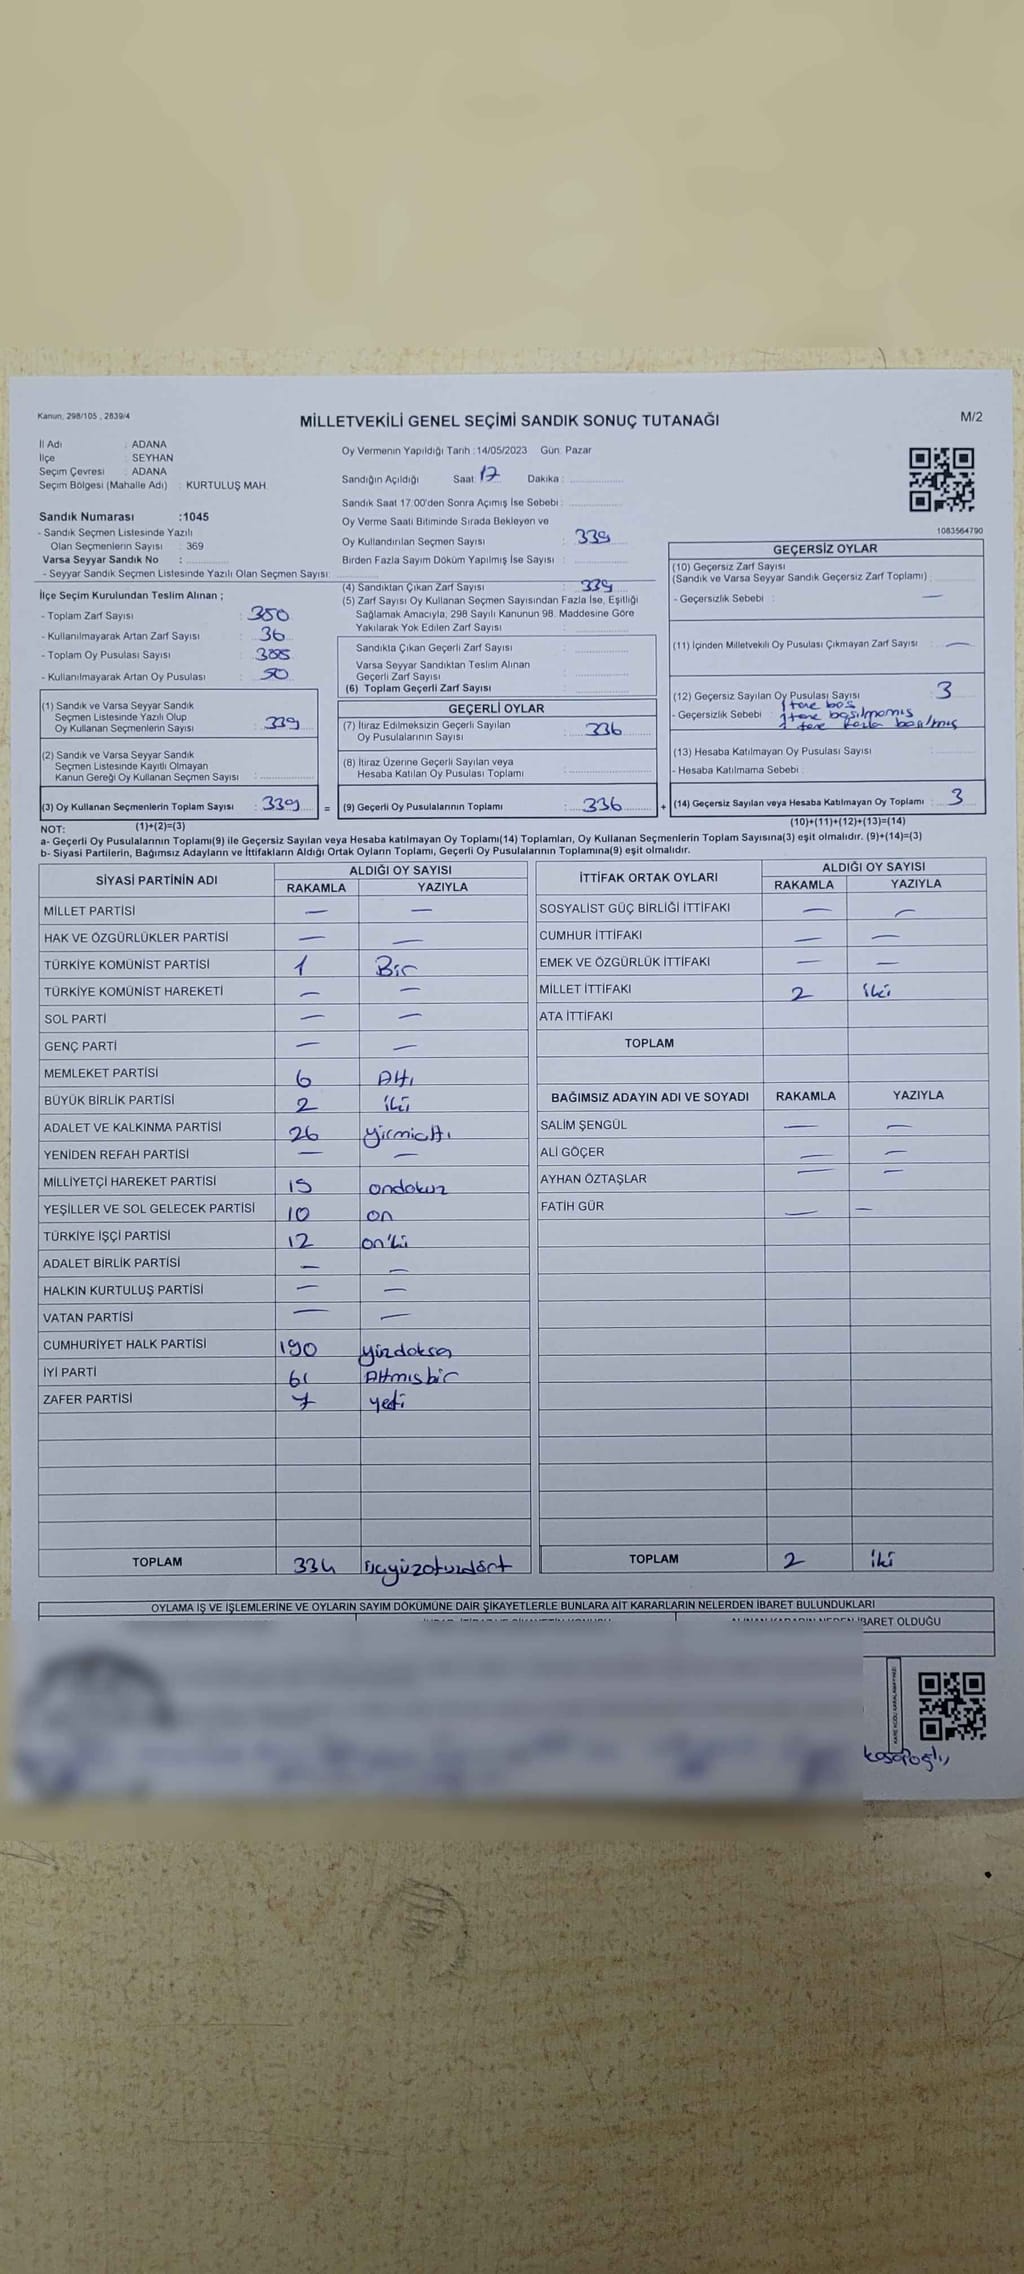 Kanun, 298/105 , 2839/4
MİLLETVEKİLİ GENEL SEÇİMİ SANDIK SONUÇ TUTANAĞI
M/2
İl Adı : ADANA
İlçe : SEYHAN
Seçim Çevresi : ADANA
Seçim Bölgesi (Mahalle Adı) : KURTULUŞ MAH.
Sandık Numarası :1045
- Sandık Seçmen Listesinde Yazılı
Olan Seçmenlerin Sayısı : 369
Varsa Seyyar Sandık No :
- Seyyar Sandık Seçmen Listesinde Yazılı Olan Seçmen Sayısı:
Oy Vermenin Yapıldığı Tarih :14/05/2023 Gün: Pazar
Sandığın Açıldığı Saat: 17 Dakika :
Sandık Saat 17:00'den Sonra Açımış İse Sebebi :
Oy Verme Saati Bitiminde Sırada Bekleyen ve
Oy Kullandırılan Seçmen Sayısı : 339
Birden Fazla Sayım Döküm Yapılmış İse Sayısı :
1083564790
İlçe Seçim Kurulundan Teslim Alınan ;
- Toplam Zarf Sayısı : 380
- Kullanılmayarak Artan Zarf Sayısı : 36
- Toplam Oy Pusulası Sayısı : 388
- Kullanılmayarak Artan Oy Pusulası : 50
(1) Sandık ve Varsa Seyyar Sandık
Seçmen Listesinde Yazılı Olup
Oy Kullanan Seçmenlerin Sayısı : 339
(2) Sandık ve Varsa Seyyar Sandık
Seçmen Listesinde Kayıtlı Olmayan
Kanun Gereği Oy Kullanan Seçmen Sayısı :
(3) Oy Kullanan Seçmenlerin Toplam Sayısı : 339
(4) Sandıktan Çıkan Zarf Sayısı : 339
(5) Zarf Sayısı Oy Kullanan Seçmen Sayısından Fazla İse, Eşitliği
Sağlamak Amacıyla; 298 Sayılı Kanunun 98. Maddesine Göre
Yakılarak Yok Edilen Zarf Sayısı :
Sandıkta Çıkan Geçerli Zarf Sayısı :
Varsa Seyyar Sandıktan Teslim Alınan
Geçerli Zarf Sayısı :
(6) Toplam Geçerli Zarf Sayısı :
GEÇERLİ OYLAR
(7) İtiraz Edilmeksizin Geçerli Sayılan
Oy Pusulalarının Sayısı : 336
(8) İtiraz Üzerine Geçerli Sayılan veya
Hesaba Katılan Oy Pusulası Toplamı :
= (9) Geçerli Oy Pusulalarının Toplamı : 336
GEÇERSİZ OYLAR
(10) Geçersiz Zarf Sayısı
(Sandık ve Varsa Seyyar Sandık Geçersiz Zarf Toplamı) :
- Geçersizlik Sebebi : —
(11) İçinden Milletvekili Oy Pusulası Çıkmayan Zarf Sayısı : —
(12) Geçersiz Sayılan Oy Pusulası Sayısı : 3
1 tane boş
- Geçersizlik Sebebi : 1 tane basılmamış
1 tane fazla basılmış
(13) Hesaba Katılmayan Oy Pusulası Sayısı
- Hesaba Katılmama Sebebi :
+ (14) Geçersiz Sayılan veya Hesaba Katılmayan Oy Toplamı : 3
NOT: (1)+(2)=(3)
(10)+(11)+(12)+(13)=(14)
a- Geçerli Oy Pusulalarının Toplamı(9) ile Geçersiz Sayılan veya Hesaba katılmayan Oy Toplamı(14) Toplamları, Oy Kullanan Seçmenlerin Toplam Sayısına(3) eşit olmalıdır. (9)+(14)=(3)
b- Siyasi Partilerin, Bağımsız Adayların ve İttifakların Aldığı Ortak Oyların Toplamı, Geçerli Oy Pusulalarının Toplamına(9) eşit olmalıdır.
SİYASİ PARTİNİN ADI ALDIĞI OY SAYISI
RAKAMLA YAZIYLA
MİLLET PARTİSİ — —
HAK VE ÖZGÜRLÜKLER PARTİSİ — —
TÜRKİYE KOMÜNİST PARTİSİ 1 Bir
TÜRKİYE KOMÜNİST HAREKETİ — —
SOL PARTİ — —
GENÇ PARTİ — —
MEMLEKET PARTİSİ 6 Altı
BÜYÜK BİRLİK PARTİSİ 2 iki
ADALET VE KALKINMA PARTİSİ 26 yirmialtı
YENİDEN REFAH PARTİSİ — —
MİLLİYETÇİ HAREKET PARTİSİ 19 ondokuz
YEŞİLLER VE SOL GELECEK PARTİSİ 10 on
TÜRKİYE İŞÇİ PARTİSİ 12 on'iki
ADALET BİRLİK PARTİSİ — —
HALKIN KURTULUŞ PARTİSİ — —
VATAN PARTİSİ — —
CUMHURİYET HALK PARTİSİ 190 yüzdoksan
İYİ PARTİ 61 Altmışbir
ZAFER PARTİSİ 7 yedi
TOPLAM 334 üçyüzotuzdört
İTTİFAK ORTAK OYLARI ALDIĞI OY SAYISI
RAKAMLA YAZIYLA
SOSYALİST GÜÇ BİRLİĞİ İTTİFAKI — —
CUMHUR İTTİFAKI — —
EMEK VE ÖZGÜRLÜK İTTİFAKI — —
MİLLET İTTİFAKI 2 iki
ATA İTTİFAKI
TOPLAM
BAĞIMSIZ ADAYIN ADI VE SOYADI RAKAMLA YAZIYLA
SALİM ŞENGÜL — —
ALİ GÖÇER — —
AYHAN ÖZTAŞLAR — —
FATİH GÜR — —
TOPLAM 2 iki
OYLAMA İŞ VE İŞLEMLERİNE VE OYLARIN SAYIM DÖKÜMÜNE DAİR ŞİKAYETLERLE BUNLARA AİT KARARLARIN NELERDEN İBARET BULUNDUKLARI
İBARET OLDUĞU